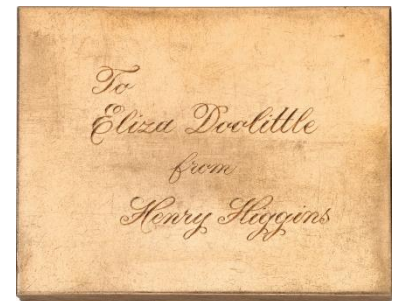 To
Eliza Doolittle
from
Henry Higgins